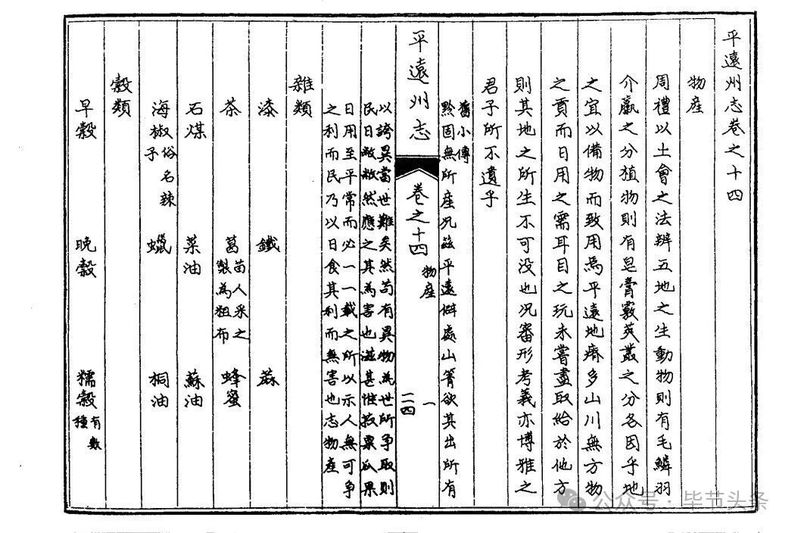 平遠州志卷之十四
物產
周禮以土會之法辨五地之生動物則有毛鱗羽
介臝之分植物則有皂膏覈莢叢之分各因乎地
之宜以備物而致用焉平遠地瘠多山川無方物
之貢而日用之需耳目之玩未嘗盡取給於他方
則其地之所生不可没也况審形考義亦博雅之
君子所不遺乎
舊小傳
黔固無所產况茲平遠僻處山箐欲其出所有
平遠州志
卷之十四
物產
一
二四
以誇異當世難矣然苟有異物為世所爭取則
民日敝敝然應之其為害也滋甚惟菽粟瓜果
日用至平常而必一一載之所以示人無可爭
之利而民乃以日食其利而無害也志物產
雜類
漆 鐵 蔴
茶 葛苗人采之製為粗布 蜂蜜
石煤 菜油 蘇油
海椒子俗名辣 蠟 桐油
穀類
早穀 晚穀 糯穀有數種
公众号·毕节头条